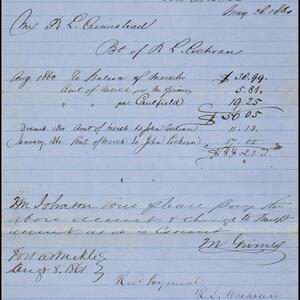 May 1861
Mr R L Armistead
Bt of R L Cochran
Aug 1860 To Balance of Merch $30.99
" " Amt of Merch per Mr Grimes 5.81
" " " per Caulfield 19.25
$56.05
Decemb 1860 Amt of Merch to John Cochran 11.13
January 1861 Amt of Merch to John Cochran 17.05
$84.23
Mr Johnson will please pay the
above account & charge to
account as it is correct
M Grimes
Augt 8. 1861
Recd Payment
R. L. Cochran